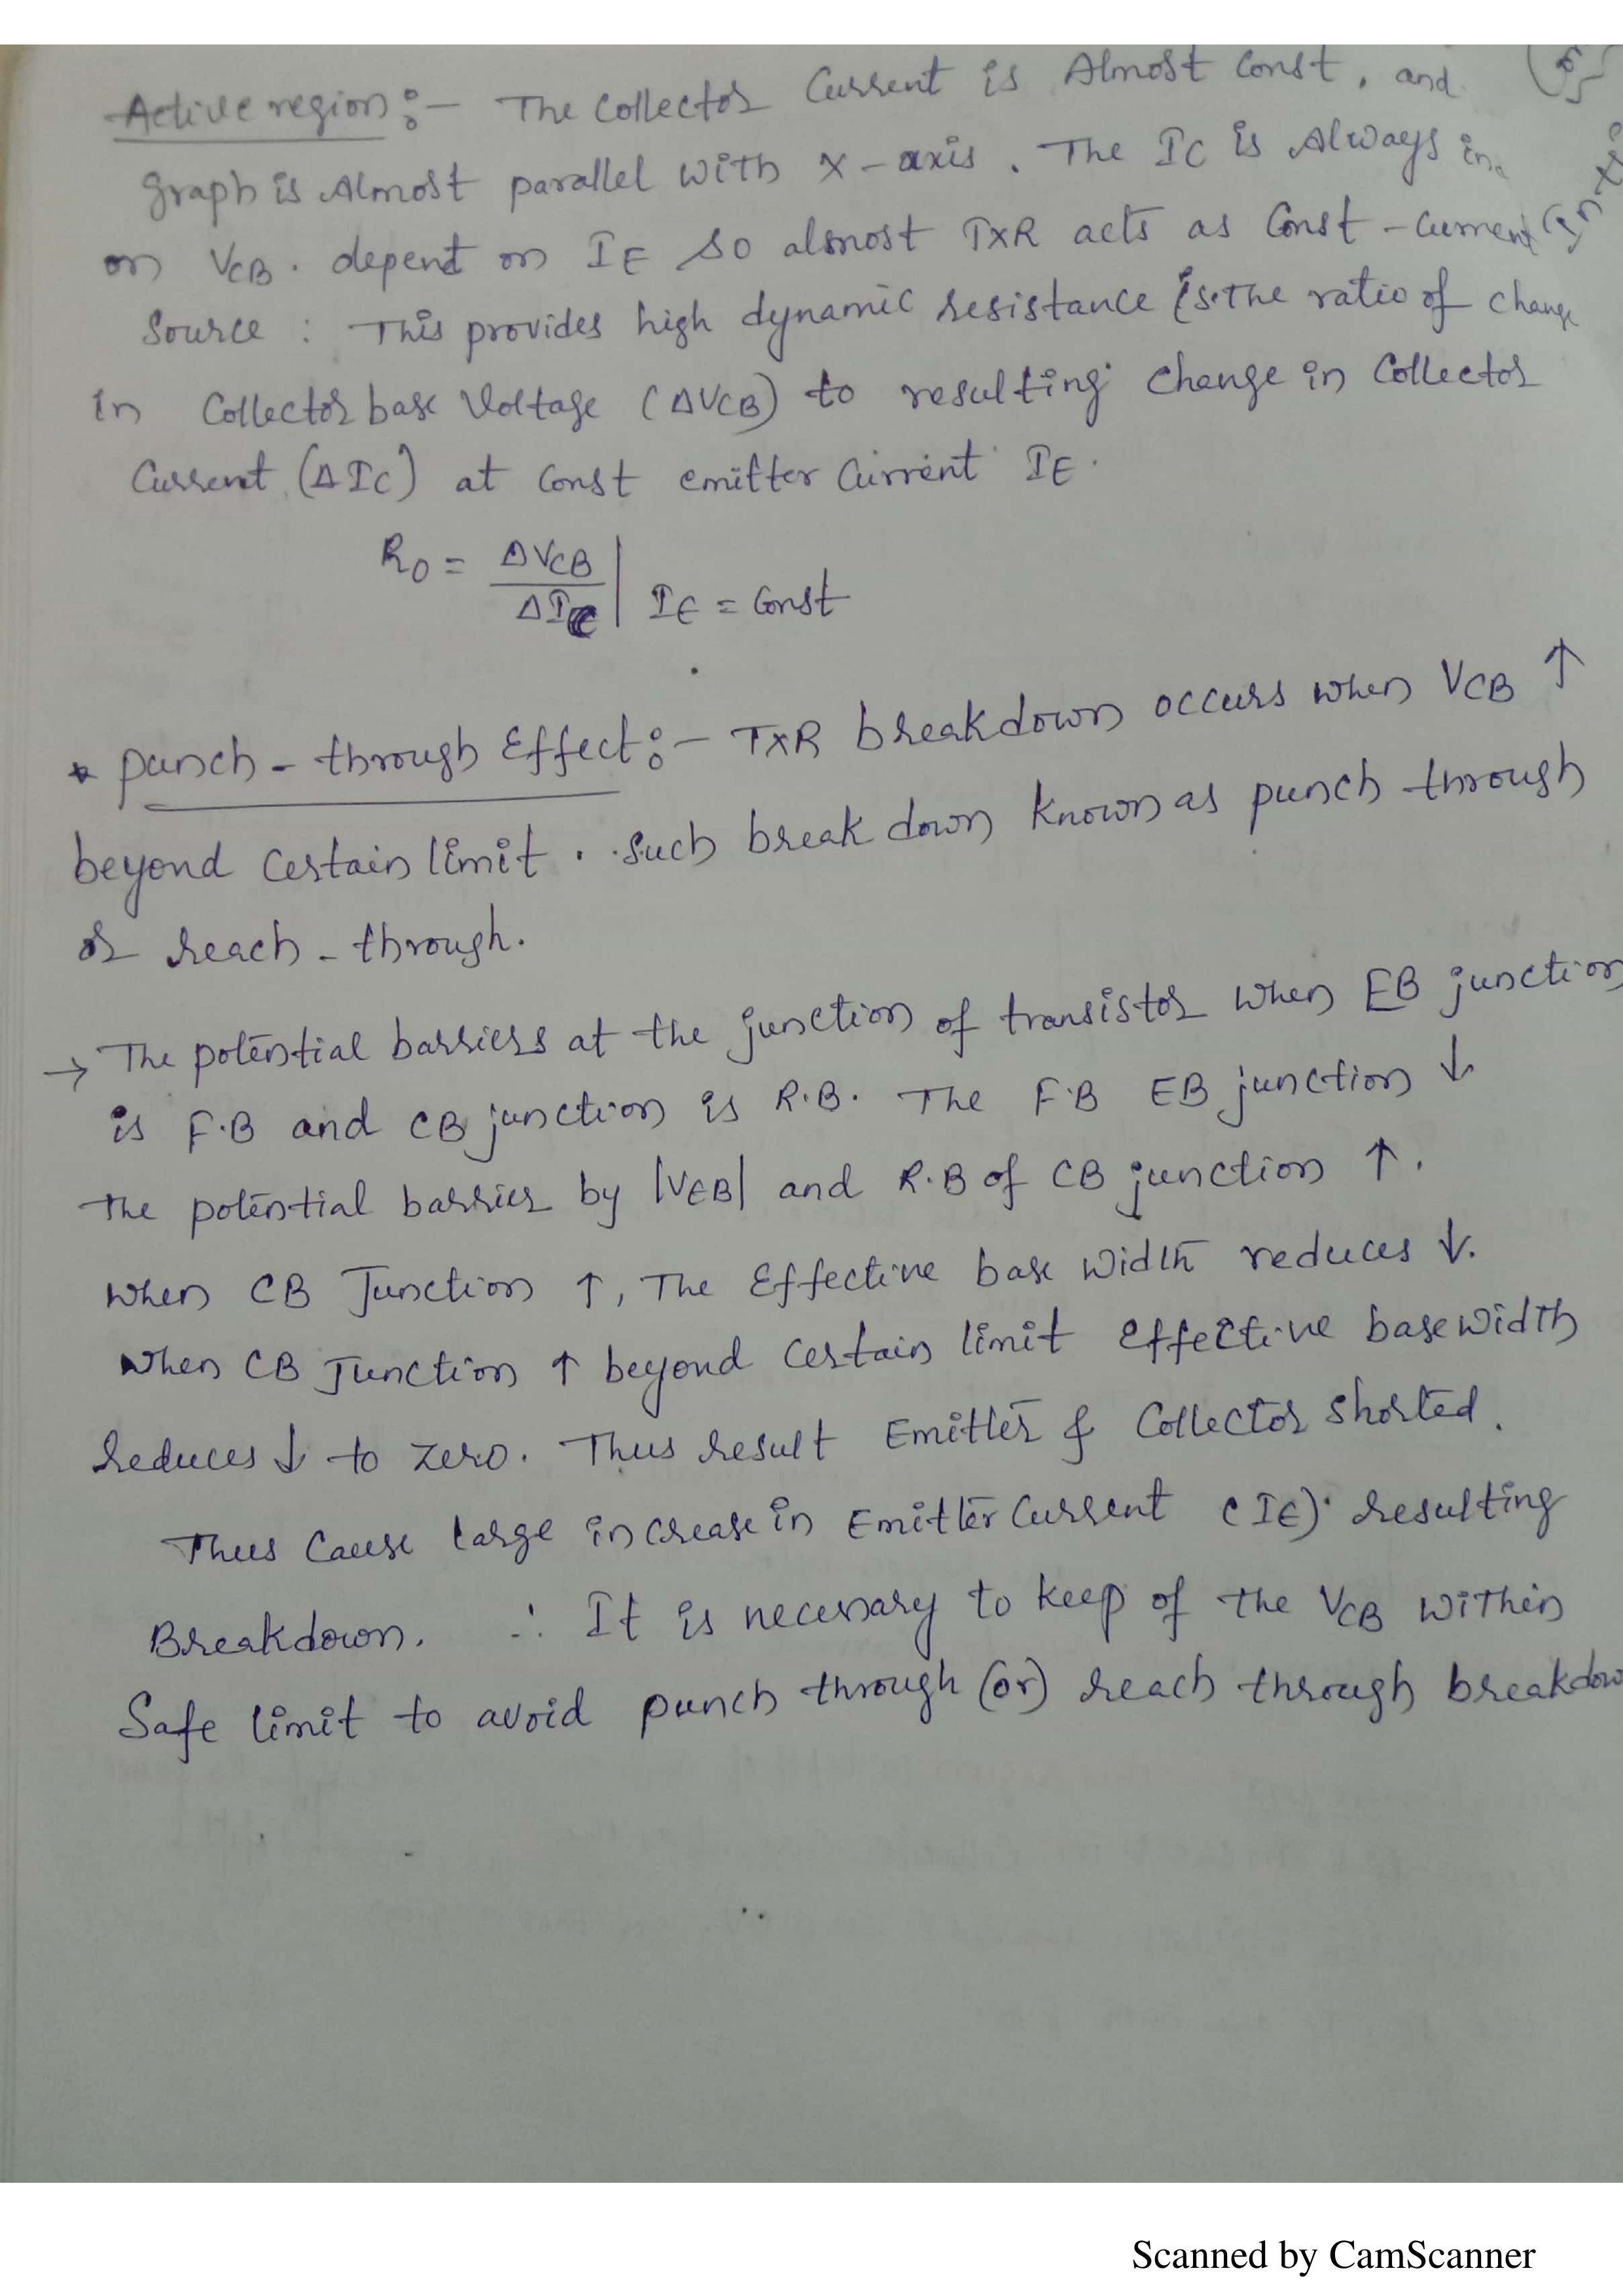 Active region :- The Collector Current is Almost Const, and
graph is Almost parallel with x-axis. The IC is Always in
on VCB. depend on IE so almost TXR acts as Const-Current
Source : This provides high dynamic resistance is the ratio of change
in Collector base Voltage (ΔVCB) to resulting change in Collector
Current (ΔIC) at Const emitter Current IE.
R0 = ΔVCB / ΔIC | IE = Const
* punch-through Effect :- TXR breakdown occurs when VCB ↑
beyond Certain limit. Such break down known as punch through
or reach-through.
→ The potential barriers at the junction of transistor when EB junction
is F.B and CB junction is R.B. The F.B EB junction ↓
the potential barrier by |VEB| and R.B of CB junction ↑.
when CB Junction ↑, The Effective base width reduces ↓.
when CB Junction ↑ beyond Certain limit effective base width
reduces ↓ to zero. Thus result Emitter & Collector shorted.
Thus Cause large increase in Emitter Current (IE). resulting
Breakdown. ∴ It is necessary to keep of the VCB within
Safe limit to avoid punch through (or) reach through breakdow
Scanned by CamScanner